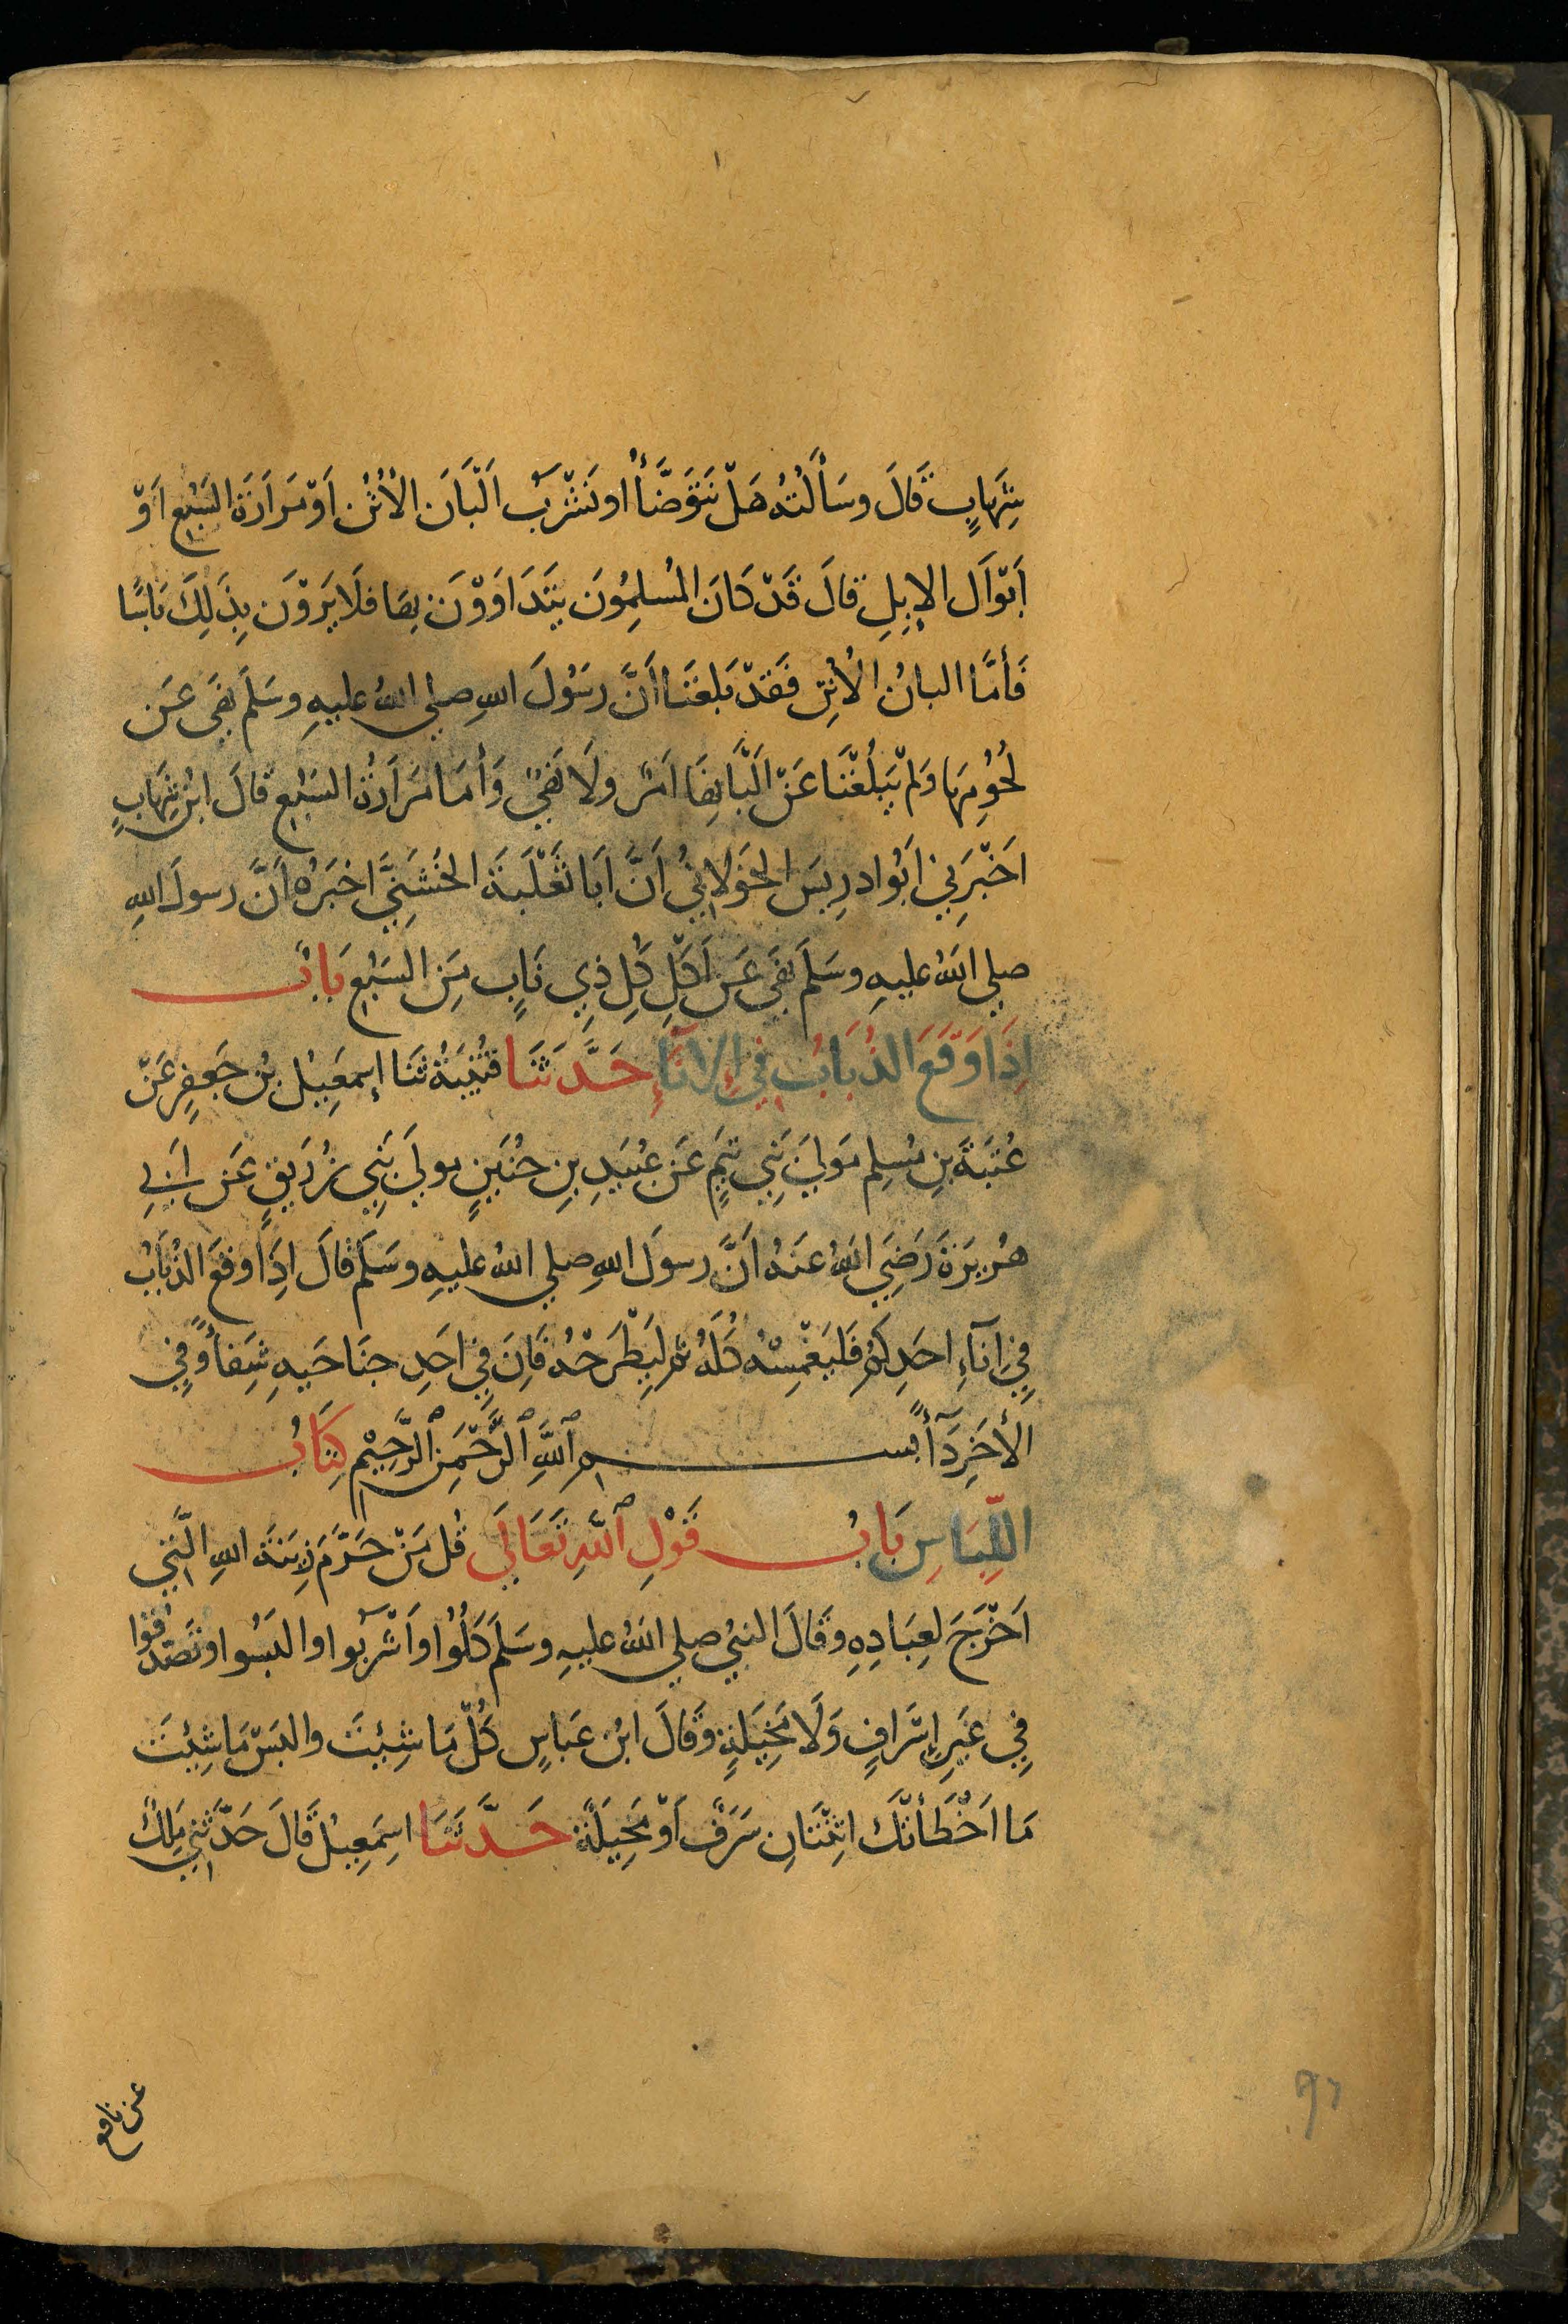 شِهَابٍ قَالَ وسَأَلْتُهُ هَلْ نَتَوَضَّأُ او نَشْرَبُ اَلْبَانَ الأُتُنِ اَوْ مَرَارَةَ السَّبُعِ اَوْ
اَبْوَالَ الإِبِلِ قَالَ قَدْ كَانَ المُسلِمُونَ يَتَدَاوَوْنَ بِهَا فلَا يَرَوْنَ بِذَلِكَ بَاسًا
فَأَمَّا البانُ الأُتُنِ فَقَدْ بَلغَنَا اَنَّ رسُولَ اللهِ صلي اللهُ عليهِ وسَلَّمَ نَهَى عَن
لُحُومِهَا وَلَمْ يَبْلُغْنَا عَنْ اَلْبَانِهَا اَمْرٌ ولَا نَهْيٌ وَأَمَا مَرَارَةُ السَبُعِ قَالَ ابْن شِهَابٍ
اخَبْرَنِي اَبُوا ادرِيسَ الخَوْلانِيُّ اَنَّ اَبَا ثَعْلَبَةَ الخُشَنِيَّ اخبَرَهُ اَنَّ رسولَ اللهِ
صلي اللهُ عليهِ وسَلَّمَ نهَى عَن اَكْلِ كُلِ ذِي نَابٍ مِن السَبُعِ بَابُ
اِذَا وَقَعَ الذُبَابُ فِي اِلانَآءِ حَدَّثَنَا قُتَيْبَةُ ثَنَا إسمَعِيْل بْن جَعفِرٍ عَنْ
عُتْبَةَ بنِ مُسلِمٍ مَولَي بَنِي تَيْمٍ عَن عُبَيدِ بنِ حُنَينٍ مولَي بَنِي زُرَيقٍ عَن اَبِي
هُرَيرَةَ رَضِيَ اللهُ عَنهُ اَنَّ رسولَ اللهِ صلي اللهُ عليهِ وسَلَّمَ قَالَ اِذَا وقعَ الذُبَابُ
فِي اِنآءِ احَدِكُم فَليَغْمِسْهُ كُلَهُ ثم لِيَطْرَحْهُ فَاِنَ فِي اَحَدِ جنَاحَيهِ شِفَاءً وفِي
الأخَرِ دَآءً بســـــم اللَّهِ الرَّحْمَنِ الرَّحِيْمِ كِتَابُ
اللِّبَاسِ بَابُ قَوْلِ اللَّهِ تَعَالَي قُل مَنْ حَرَّمَ زِينَةَ اللهِ الَّتِي
اَخْرَجَ لِعِبَادِهِ وقَالَ النبيُ صلي اللهُ عليهِ وسَلَّمَ كُلُوا واَشْرَبُوا والبَسُوا وتَصَدَقُوا
فِي غَيرِ اِسْرَافٍ وَلَا مَخِيَلةٍ وقَالَ ابْن عَبَاسٍ كُلْ مَا شِئْتَ والبَسْ مَا شِئْتَ
مَا اَخْطَأتْكَ اثِنْتَانِ سَرَفٌ اَوْ مَخِيلَةٌ حَدَّثَنَا اسِمَعِيْل قَالَ حَدَّثَنِي مَلِكٌ
عن نافع
٩٦